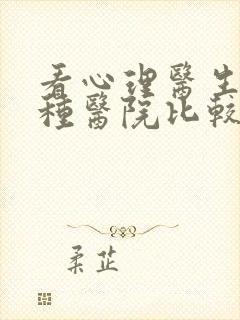 看心理醫生
種醫院比較
柔芷